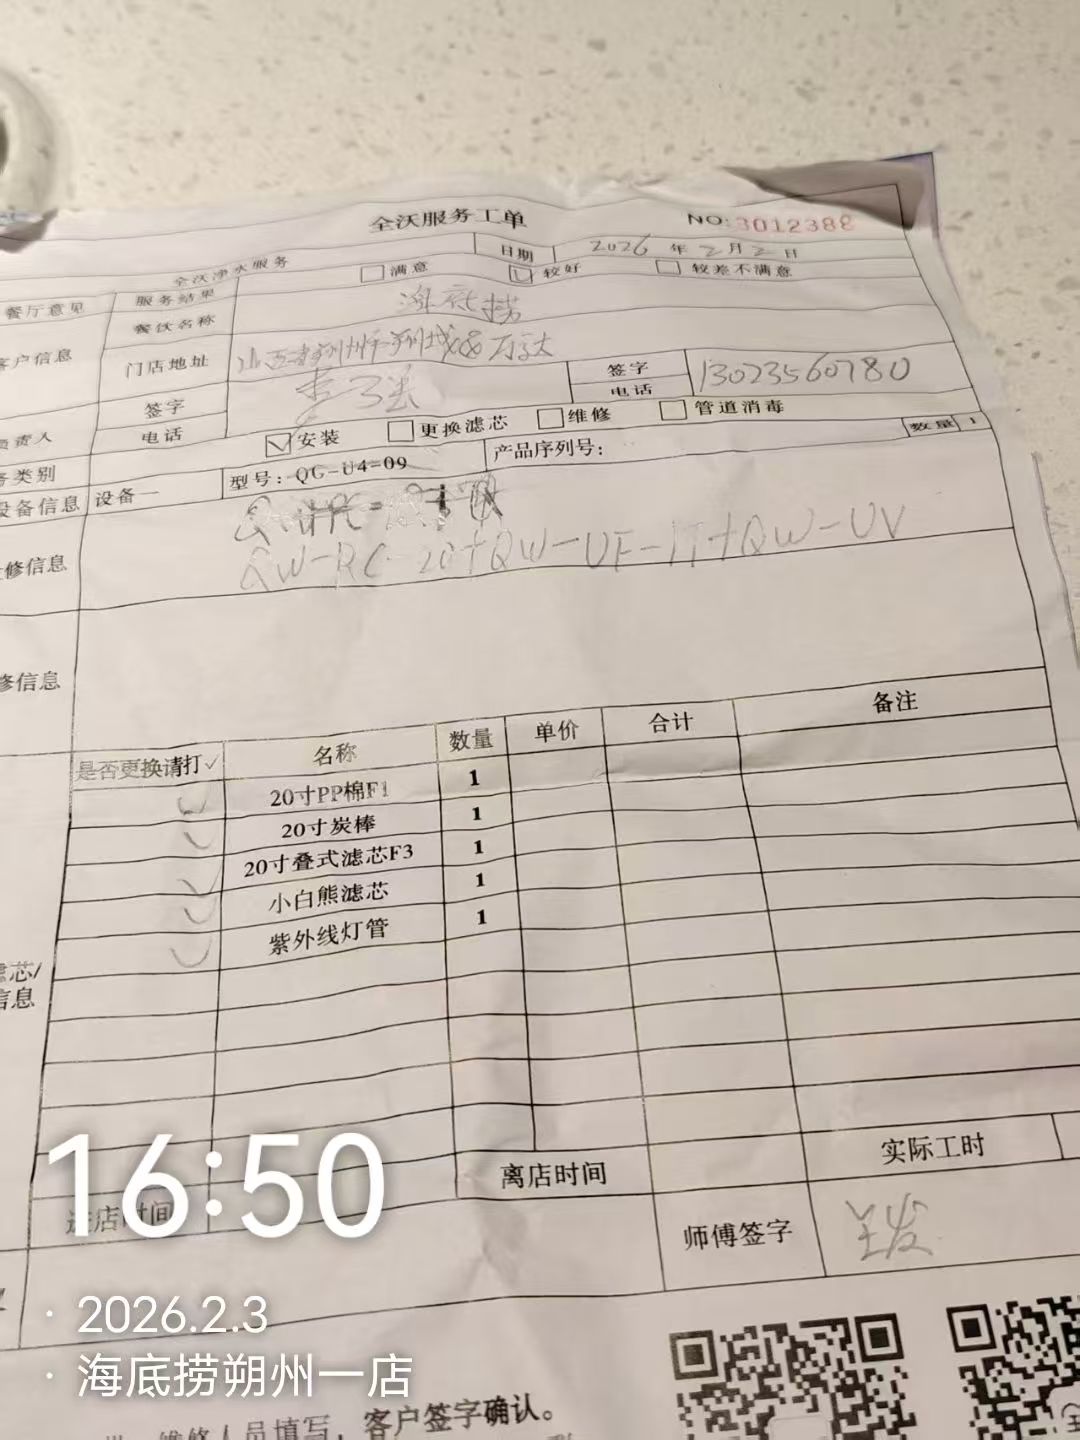 全沃服务工单
NO:3012388
全沃净水服务
日期 2026 年 2 月 2 日
餐厅意见 服务结果 满意 较好 较差不满意
餐饮名称 海底捞
客户信息 门店地址 山西省朔州市朔城区万达
签字 签字
负责人 电话 电话 13023560780
务类别 安装 更换滤芯 维修 管道消毒
设备信息 设备一 型号:QG-U4=09 产品序列号: 数量 1
修信息 QW-RC-20+QW-UF-1T+QW-UV
修信息
是否更换请打✓ 名称 数量 单价 合计 备注
✓ 20寸PP棉F1 1
✓ 20寸炭棒 1
✓ 20寸叠式滤芯F3 1
✓ 小白熊滤芯 1
✓ 紫外线灯管 1
滤芯/
信息
进店时间 离店时间 实际工时
师傅签字
16:50
· 2026.2.3
· 海底捞朔州一店
维修人员填写，客户签字确认。